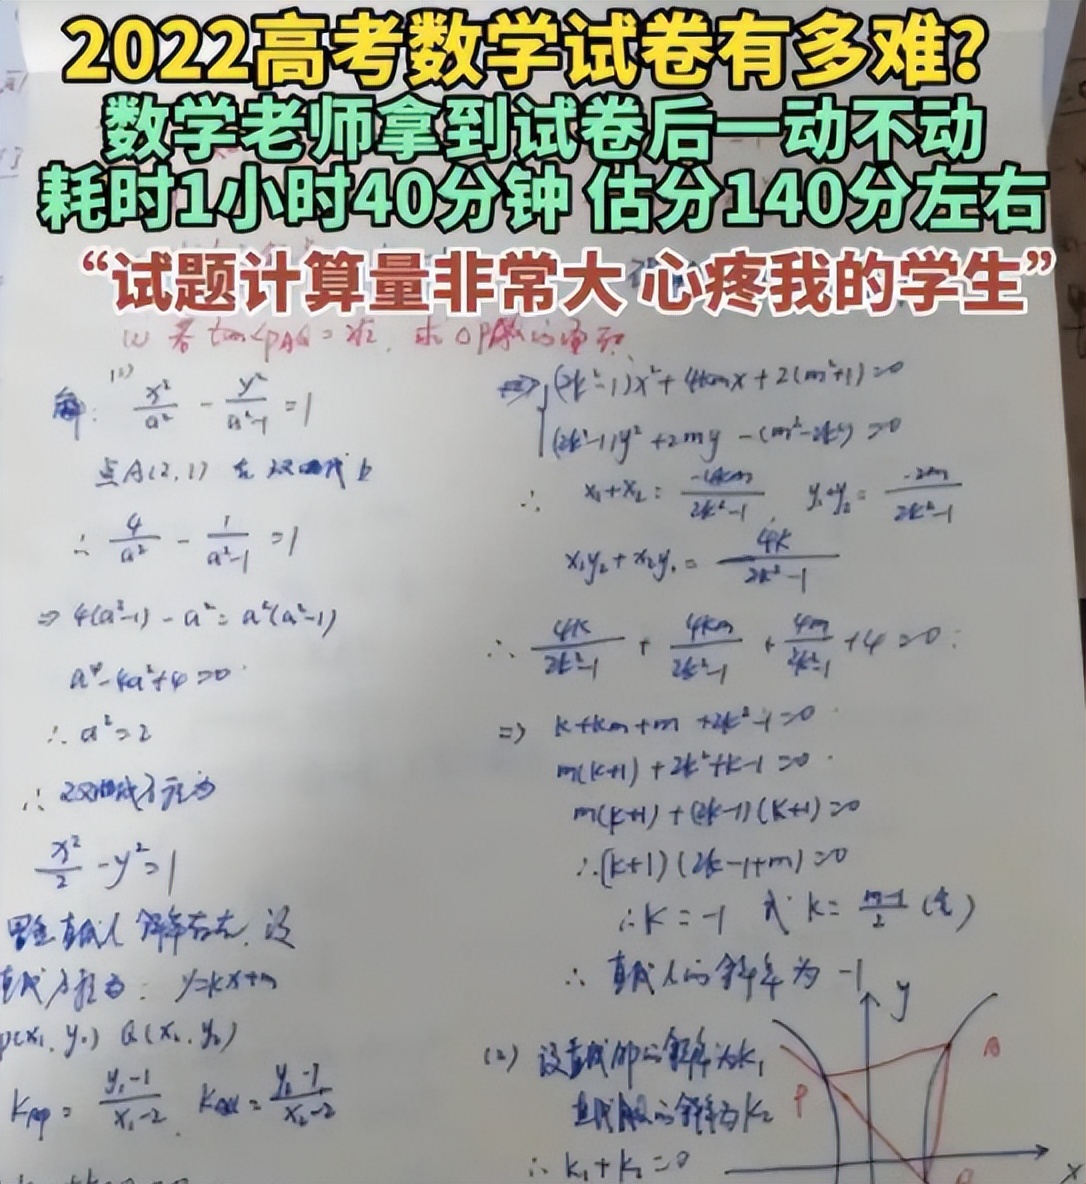 2022高考数学试卷有多难？
数学老师拿到试卷后一动不动
耗时1小时40分钟 估分140分左右
“试题计算量非常大 心疼我的学生”
(2) 若 tan∠PAQ=2√2, 求△PAQ的面积
(1)
解: x²/a² - y²/(a²-1) =1
点A(2,1) 在双曲线上
∴ 4/a² - 1/(a²-1) =1
⇒ 4(a²-1) - a² = a²(a²-1)
a⁴-4a²+4=0
∴ a²=2
∴ 双曲线方程为
x²/2 - y²=1
直线l 斜率存在, 设
直线方程为: y=kx+m
P(x₁,y₁) Q(x₂,y₂)
K_AP = (y₁-1)/(x₁-2) K_AQ = (y₂-1)/(x₂-2)
⇒ (2k²-1)x²+4kmx+2(m²+1)=0
(2k²-1)y²+2my-(m²-2k²)=0
∴ x₁+x₂ = -4km/(2k²-1), y₁+y₂ = -2m/(2k²-1)
x₁y₂+x₂y₁ = 4k/(2k²-1)
∴ 4k/(2k²-1) + 4km/(2k²-1) + 4m/(2k²-1) +4=0
⇒ k+km+m+2k²-1=0
m(k+1)+2k²+k-1=0
m(k+1)+(2k-1)(k+1)=0
∴ (k+1)(2k-1+m)=0
∴ k=-1 或 k= (m-1)/2 (舍)
∴ 直线l的斜率为 -1
(2) 设直线AP的斜率为k₁
直线AQ的斜率为k₂
∴ k₁+k₂=0
y
A
P
Q
x